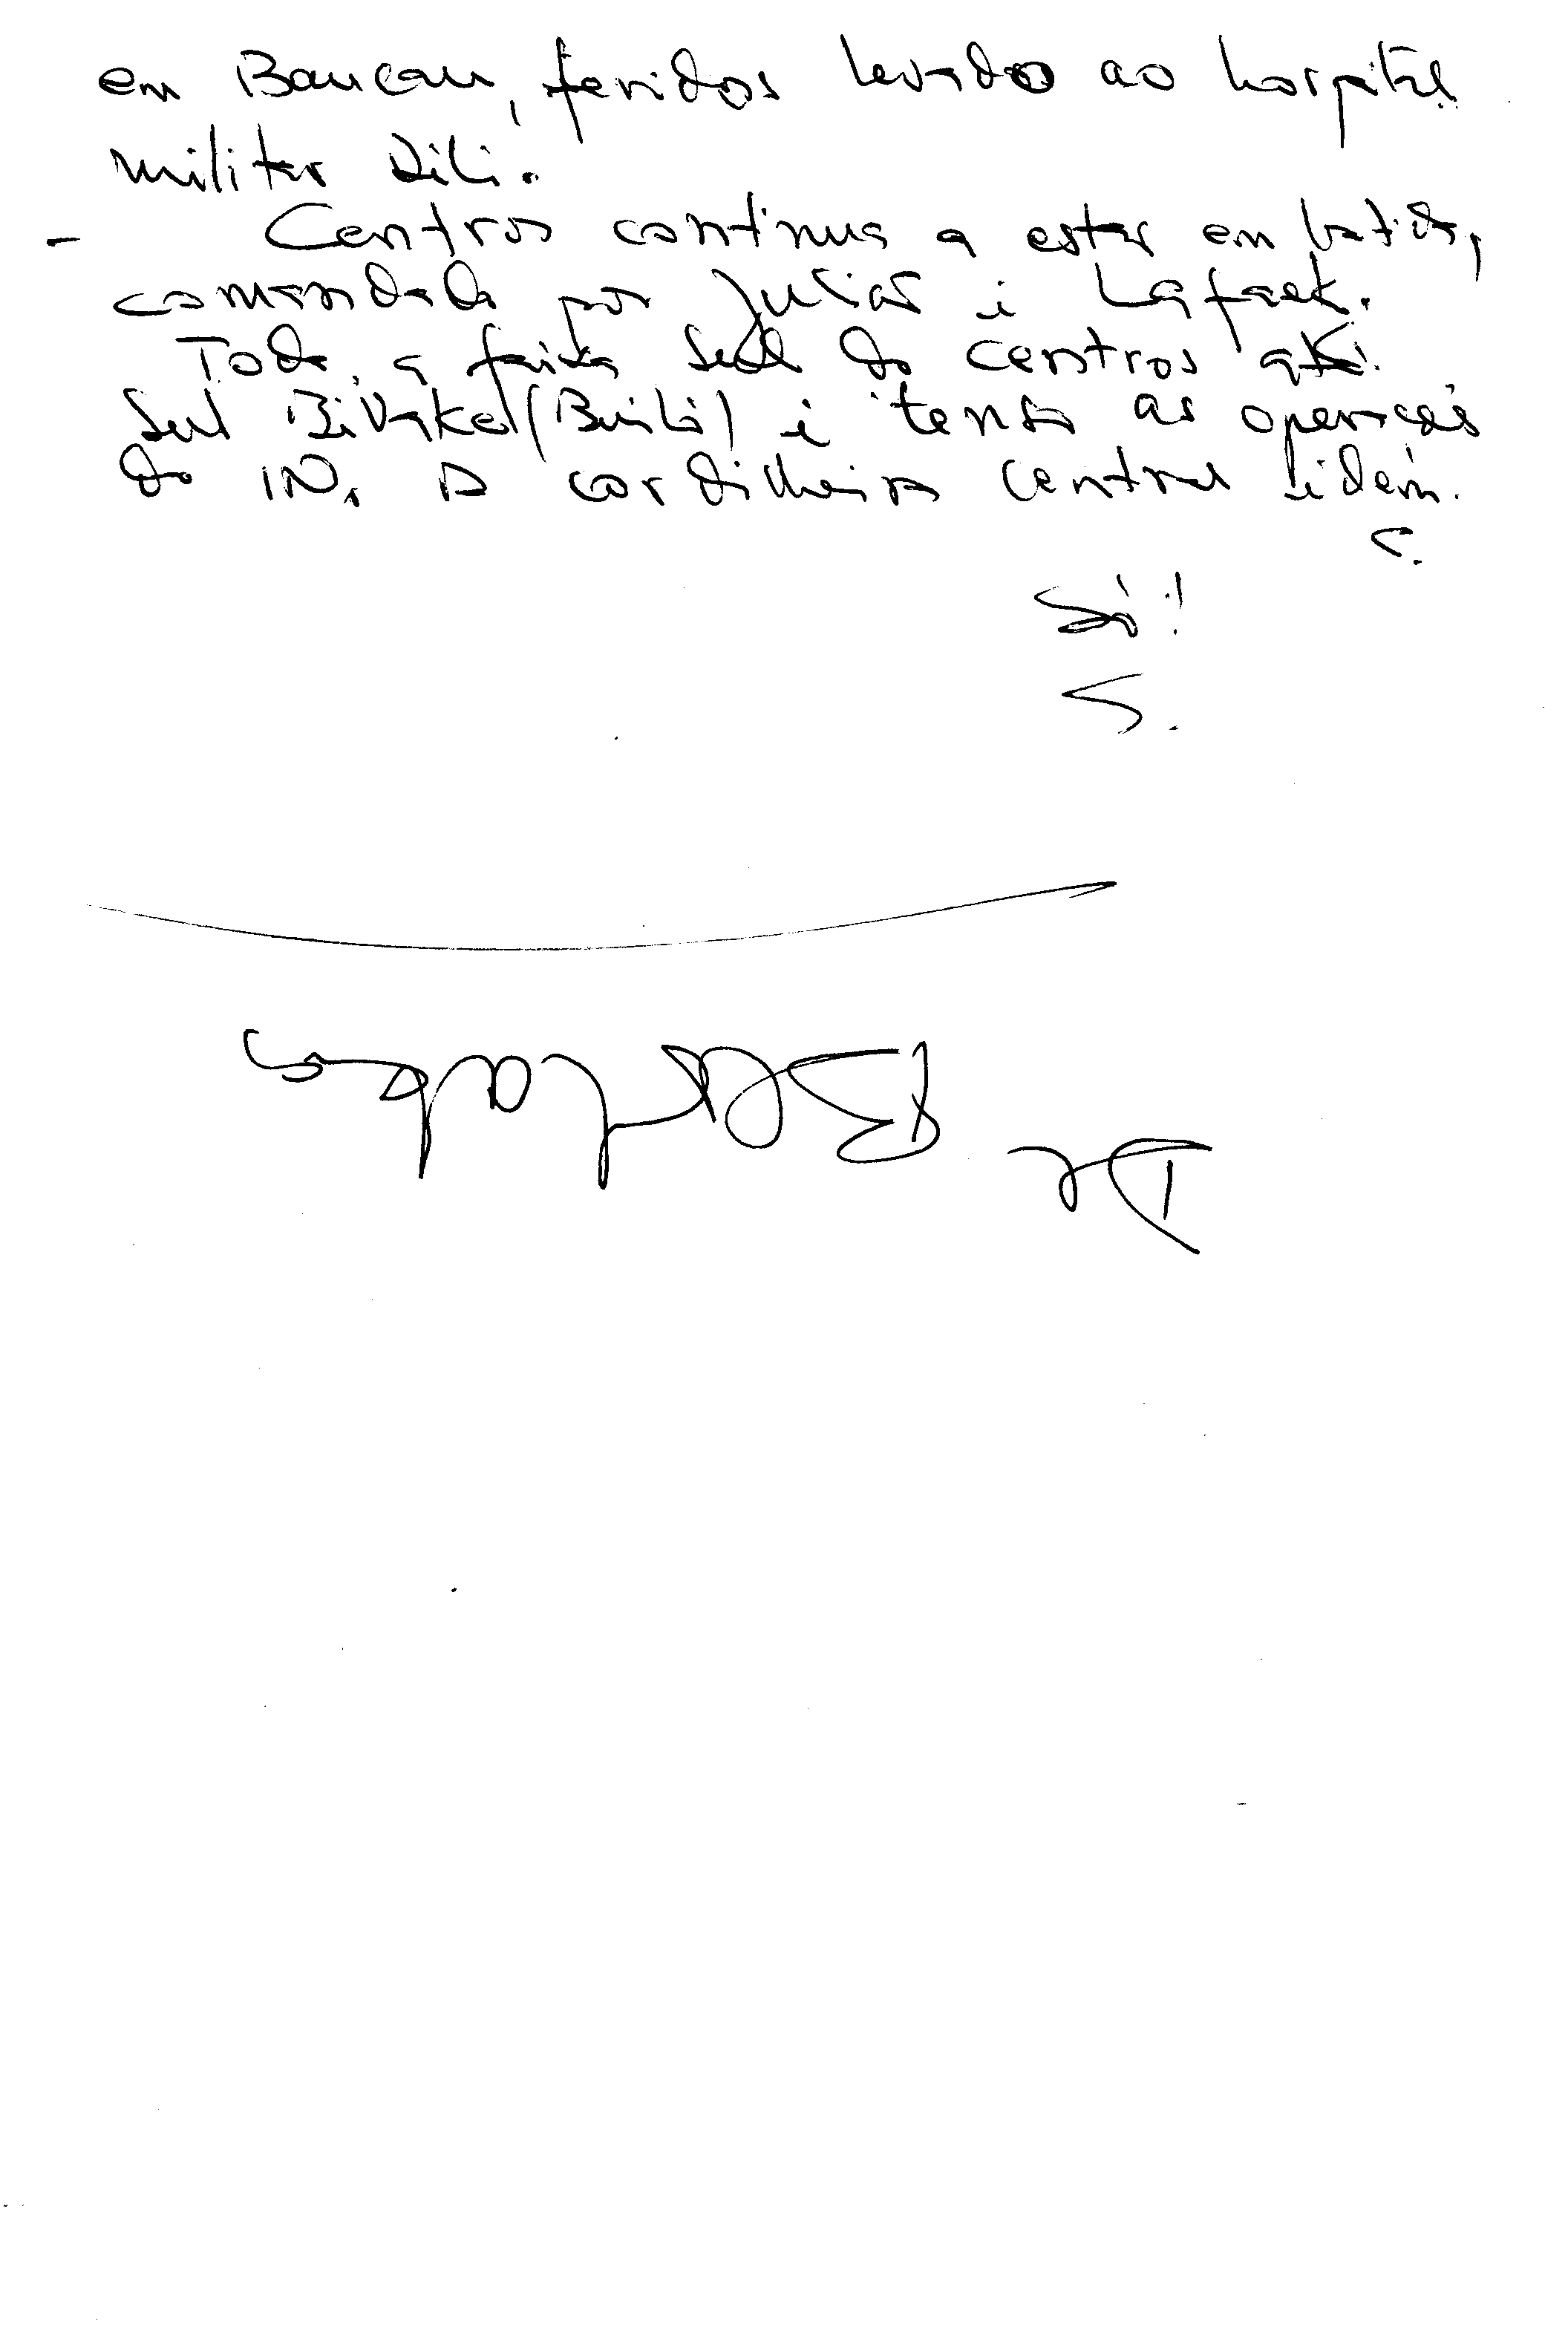 em Baucau, feridos levados ao hospital
militar Dili.
- Centros continua a estar em batida,
comandada por Julião e Lafaek.
Toda a faixa Sul do centros até
Sul Bivake (Builó) é tenso as operações
do IN. A cordilheira central idem.
C.
Só!
S.